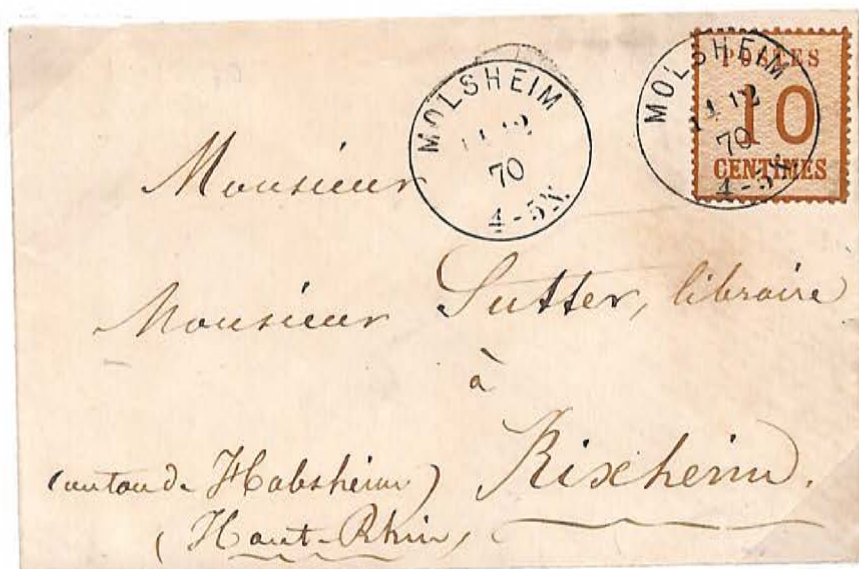 MOLSHEIM
14 12
70
4-5N.
MOLSHEIM
14 12
70
4-5N.
POSTES
10
CENTIMES
Monsieur
Monsieur Sutter, libraire
à
Rixheim.
(canton de Habsheim)
(Haut-Rhin)